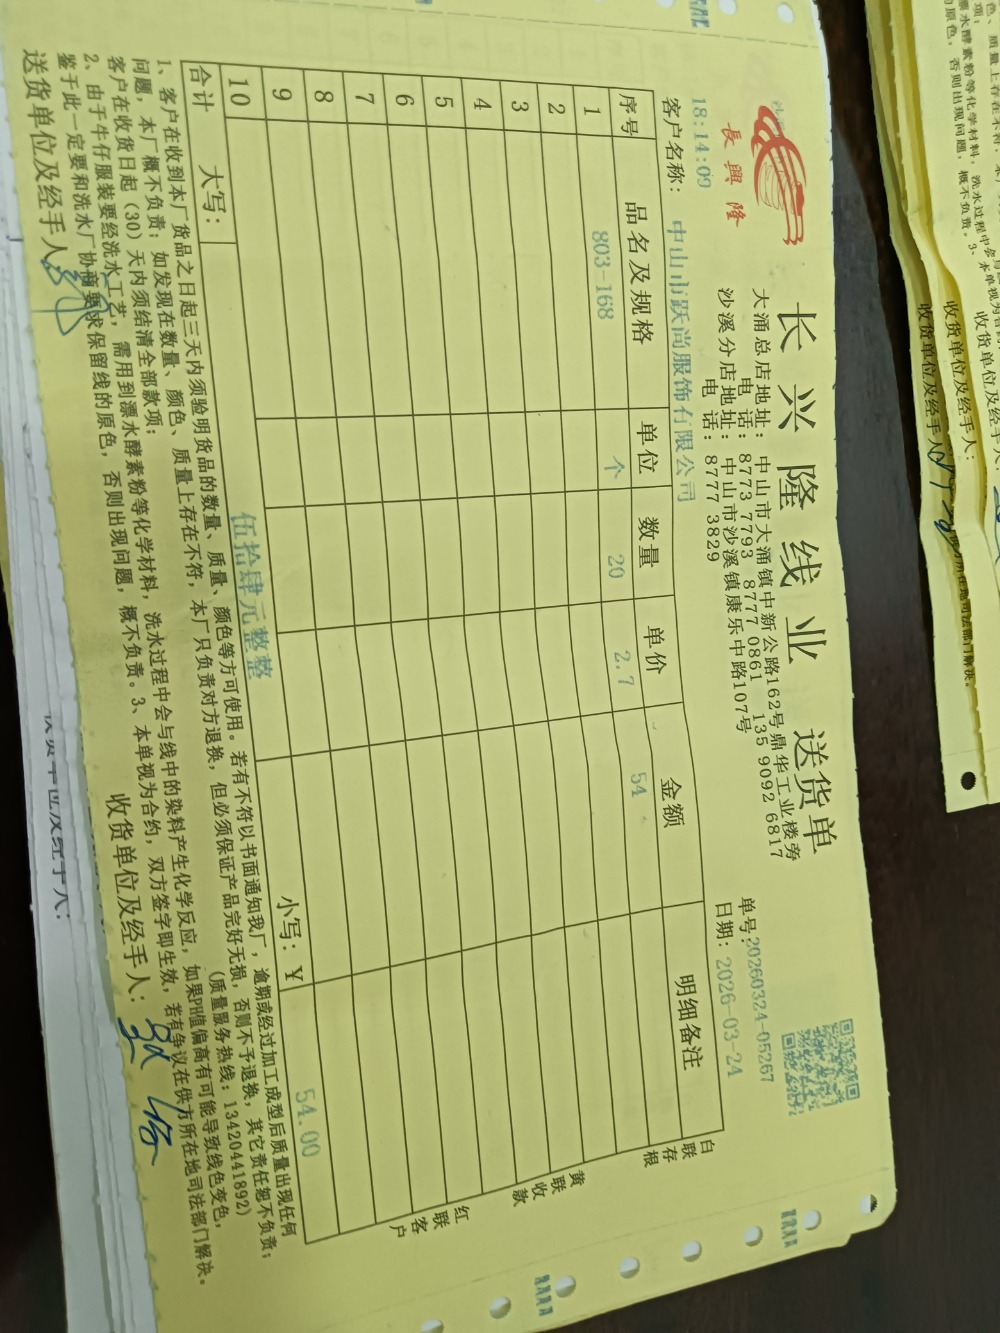 长兴隆线业 送货单
長興隆
大涌总店地址：中山市大涌镇中新公路162号鼎华工业楼旁
电 话：8773 7793 8777 0861 135 9092 6817
沙溪分店地址：中山市沙溪镇康乐中路107号
电 话：8777 3829
18:14:09
单号：20260324-05267
客户名称：中山市跃尚服饰有限公司
日期：2026-03-24
序号 品名及规格 单位 数量 单价 金额 明细备注
1 803-168 个 20 2.7 54
2
3
4
5
6
7
8
9
10
合计 大写：伍拾肆元整整 小写：¥ 54.00
白联存根
黄联收款
红联客户
1、客户在收到本厂货品之日起三天内须验明货品的数量、质量、颜色等方可使用。若有不符以书面通知我厂，逾期或经过加工成型后质量出现任何
问题，本厂概不负责；如发现在数量、颜色、质量上存在不符，本厂只负责对方退换，但必须保证产品完好无损，否则不予退换，其它责任恕不负责；
客户在收货日起（30）天内须结清全部款项； （质量服务热线：13420441892）
2、由于牛仔服装要经洗水工艺，需用到漂水酵素粉等化学材料，洗水过程中会与线中的染料产生化学反应，如果PH值偏高有可能导致线色变色，
鉴于此一定要和洗水厂协商要求保留线的原色，否则出现问题，概不负责。3、本单视为合约，双方签字即生效，若有争议在供方所在地司法部门解决。
送货单位及经手人： 收货单位及经手人：
收货单位及经手人：
收货单位及经手人：
收货单位及经手人